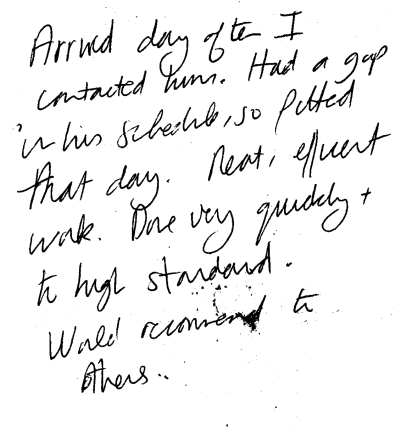 Arrived day after I
contacted him. Had a gap
in his schedule, so fitted
that day. Neat, efficient
work. Done very quickly +
to high standard.
Would recommend to
others..